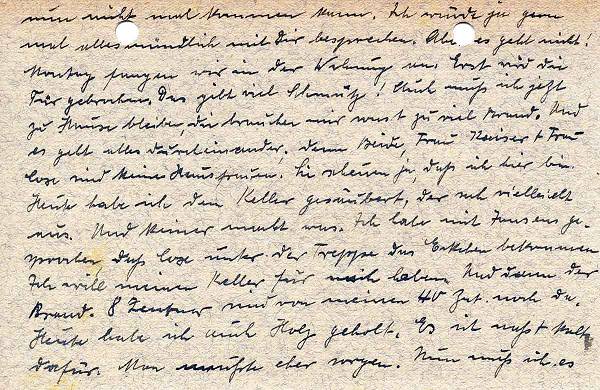 nun nicht mal kommen kann. Ich würde ja gern
mal alles mündlich mit Dir besprechen. Aber es geht nicht!
Montag fangen wir in der Wohnung an. Erst wird die
Tür gebrochen. Das gibt viel Schmutz! Auch muß ich jetzt
zu Hause bleiben, die brauchen mir sonst zu viel Brand. Und
es geht alles durcheinander, denn Beide, Frau Kaiser + Frau
Coxe sind keine Hausfrauen. Sie scheuen ja, daß ich hier bin.
Heute habe ich den Keller gesäubert, der sah vielleicht
aus. Und keiner macht was. Ich habe mit Jansens ge-
sprochen, daß Coxe unter der Treppe das Eckchen bekommen
Ich will meinen Keller für mich haben. Und dann der
Brand. 8 Zentner sind von meinen 40 Zt. noch da.
Heute habe ich auch Holz geholt. Es ist naß + kalt
dafür. Man mußte eber sorgen. Nun muß ich es